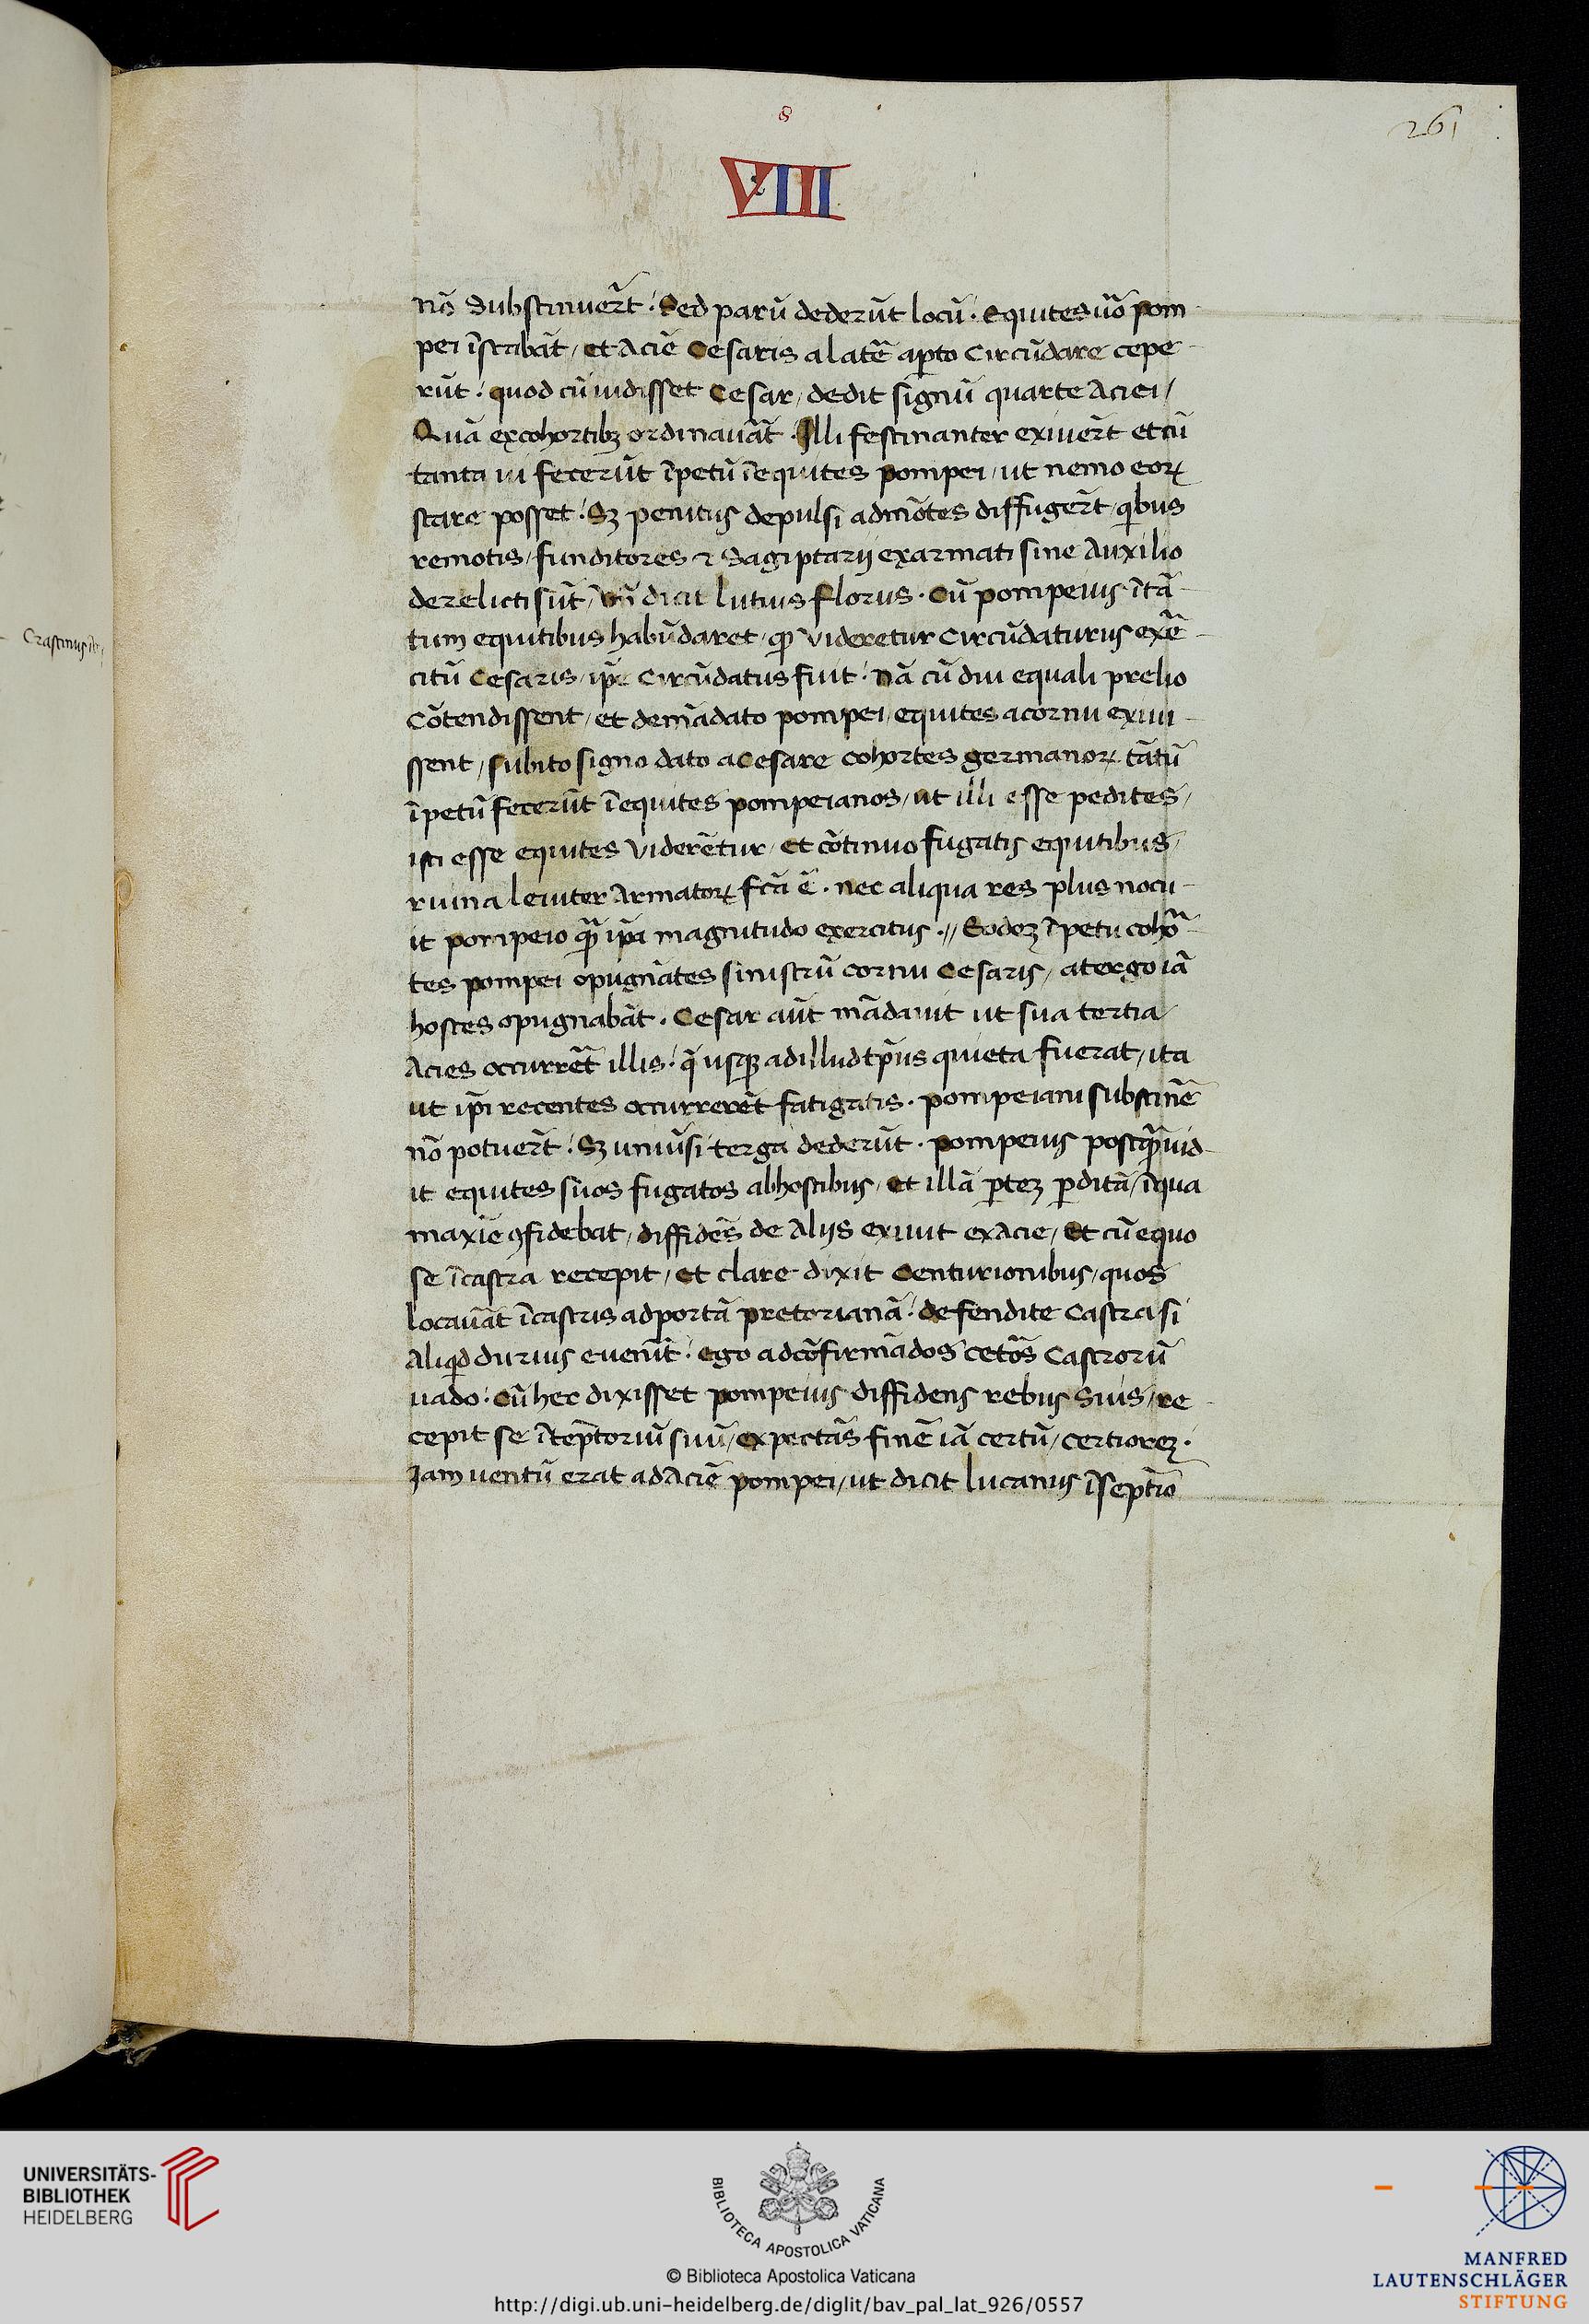 8
261
VIII
nō Substinuer̄t · Sed parū dederūt locū · Equites ūo pom
pei īstabāt / et Aciē Cesaris a latē apto Circūdare cepe
rūt · quod cū uidisset Cesar / dedit signū quarte Aciei /
Quā ex cohortibꝫ ordinauāt · Illi festinanter exiuer̄t et cū
tanta ui fecerūt īpetū ī equites pompei / ut nemo eoꝝ
stare posset · Sꝫ penitus depulsi ad mōtes diffuger̄t / qibus
remotis / funditores ⁊ Sagiptarij exarmati sine Auxilio
derelicti sūt / Vn̄ dicit lutius florus · Cū pompeius ī tā
tum equitibus habūdaret / ꝙ Videretur Circūdaturus exē
citū Cesaris / ip̄e Circūdatus fuit · Nā cū diu equali prelio
Cōtendissent / et de mādato pompei / equites a cornu exiui
ssent / subito signo dato a Cesare cohortes germanoꝝ tātū
īpetū fecerūt ī equites pompeianos / ut illi esse pedites /
isti esse equites Viderētur / et cōtinuo fugatis equitibus /
ruina leuiter Armatoꝝ fcā ē · nec aliqua res plus nocu
it pompeio ꝙ̄ ip̄a magnitudo exercitus · // Eodeꝫ īpetu cohō
tes pompei opugnātes sinistrū cornu Cesaris / a tergo iā
hostes opugnabāt · Cesar aūt mādauit ut sua tertia /
Acies occurrēt illis · q̄ usqꝫ ad illud tp̄us quieta fuerat / ita
ut ip̄i recentes occurrerēt fatigatis · pompeiani substinē
nō potuer̄t · Sꝫ uniūsi terga dederūt · pompeius postꝙ̄ uid
it equites suos fugatos ab hostibus / et illā ꝑteꝫ ꝑditā / ī qua
maxīe ꝯfidebat / diffidēs de Alijs exiuit ex Acie / et cū equo
se ī castra recepit / et clare dixit Centurionibus / quos
locauāt ī castris ad portā pretorianā · defendite Castra si
Aliqid durius euenīt · ego ad cōfirmādos cetōs Castrorū
uado · Cū hec dixisset pompeius diffidens rebus Suis / re
cepit se ī tep̄torium suū / expectās finē iā certū / certioreꝫ ·
Iam uentū erat ad Aciē pompei / ut dicit lucanus ī septīo
UNIVERSITÄTS-
BIBLIOTHEK
HEIDELBERG
BIBLIOTECA APOSTOLICA VATICANA
© Biblioteca Apostolica Vaticana
http://digi.ub.uni-heidelberg.de/diglit/bav_pal_lat_926/0557
MANFRED
LAUTENSCHLÄGER
STIFTUNG